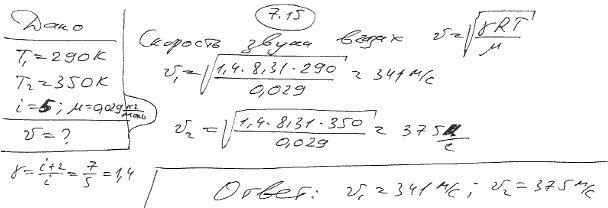 7.15
Дано
T₁ = 290 К
T₂ = 350 К
i = 5; μ = 0,029 кг/моль
v = ?
γ = (i+2)/i = 7/5 = 1,4
Скорость звука в газах v = √(γRT/μ)
v₁ = √(1,4 · 8,31 · 290 / 0,029) ≈ 341 м/с
v₂ = √(1,4 · 8,31 · 350 / 0,029) ≈ 375 м/с
Ответ: v₁ = 341 м/с; v₂ = 375 м/с